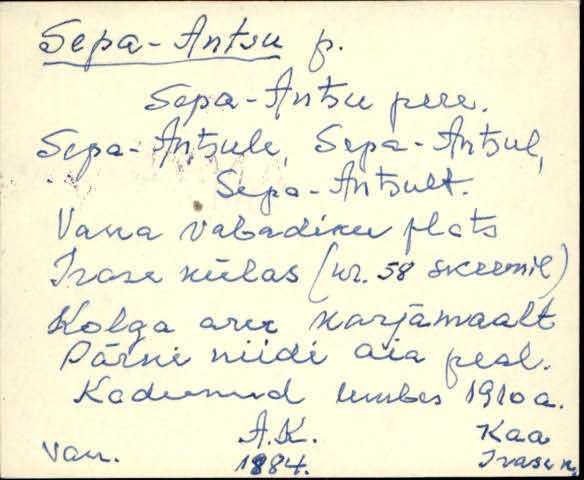 Sepa-Antsu p.
Sepa-Antsu pere.
Sepa-Antsule, Sepa-Antsul,
Sepa-Antsult.
Vana vabadiku plats
Irase külas (nr. 58 skeemil)
Kolga are karjamaalt
Pärni niidi aia peal.
Kadunud umbes 1910 a.
A.K. Kaa
Van. 1884. Irase k.